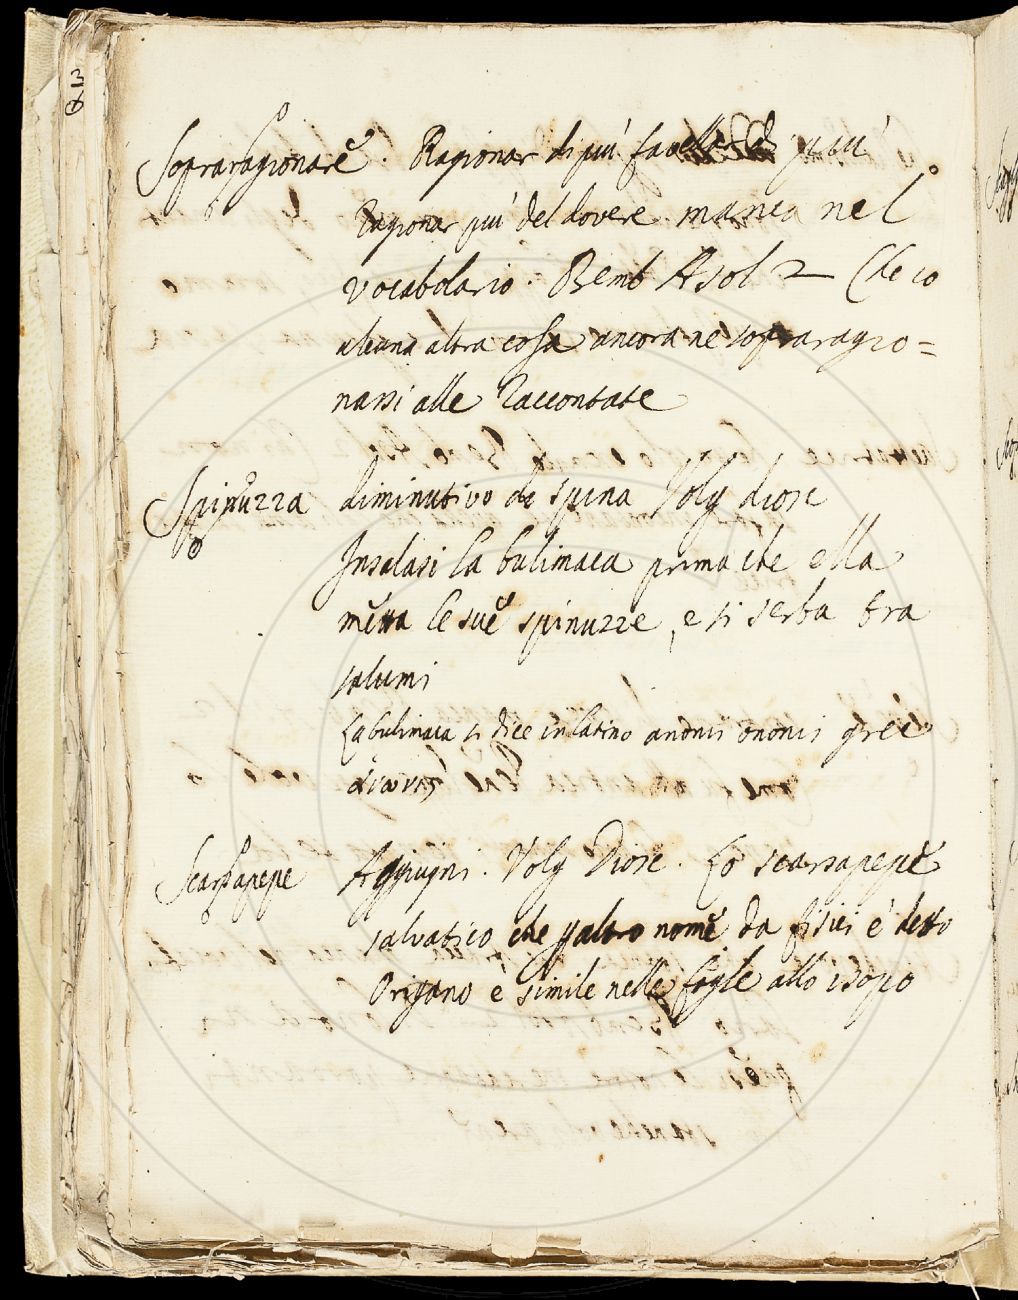 Sopraragionare. Ragionar di più favellar di più
Ragionar più del dovere. manca nel
vocabolario. Bemb Asol 2 Che io
alcuna altra cosa ancora ne sopraragio=
nassi alle raccontate
Spinuzza diminutivo di spina Volg diosc
Insalasi la bulimaca prima che ella
metta le sue spinuzze, e si serba tra
salumi
La bulimaca si dice in latino anonis ononis grec
Scarsapepe Aggiugni. Volg Diosc. Lo scarsapepe
salvatico che p altro nome da fisici è detto
Origano e simile nelle foglie allo isopo